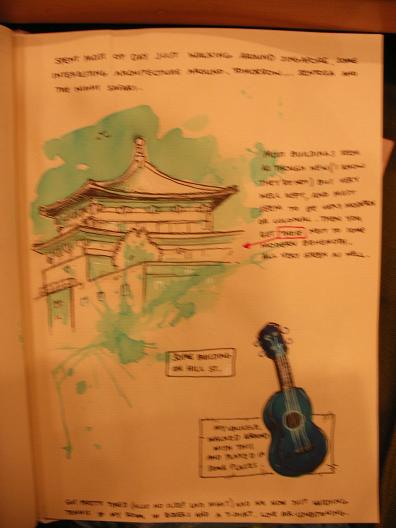 SPENT MOST OF DAY JUST WALKING AROUND SINGAPORE, SOME
INTERESTING ARCHITECTURE AROUND. TOMORROW... SENTOSA AND
THE NIGHT SAFARI.
MOST BUILDINGS SEEM
AS THOUGH NEW (I KNOW
THEY'RE NOT) BUT VERY
WELL KEPT, AND MOST
SEEM TO BE VERY MODERN
OR COLONIAL. THEN YOU
GET THESE NEXT TO SOME
MODERN BEHEMOTH.
ALL VERY GREEN AS WELL.
SOME BUILDING
ON HILL ST.
MY UKULELE.
WALKED AROUND
WITH THIS
AND PLAYED IT
SOME PLACES.
GOT PRETTY TIRED (ALSO NO SLEEP LAST NIGHT) AND AM NOW JUST WATCHING
TENNIS IN MY ROOM, IN BOXERS AND A T-SHIRT, LOVE AIR-CONDITIONING.